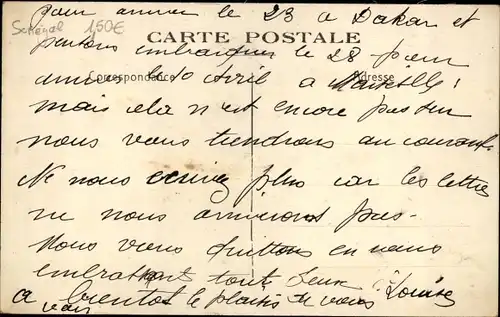 pour arriver le 23 a Dakar et
Senegal 1,50€
CARTE POSTALE
partons embarquer le 28 pour
Correspondance
Adresse
arriver le 10 Avril a Marseille!
mais cela n'est encore pas sur
nous vous tiendrons au courant
Ne nous ecrivez plus car les lettres
ne nous arriverons pas-
Nous vous quittons en vous
embrassant tout deux: Louise
a bientot le plaisir de vous
voir